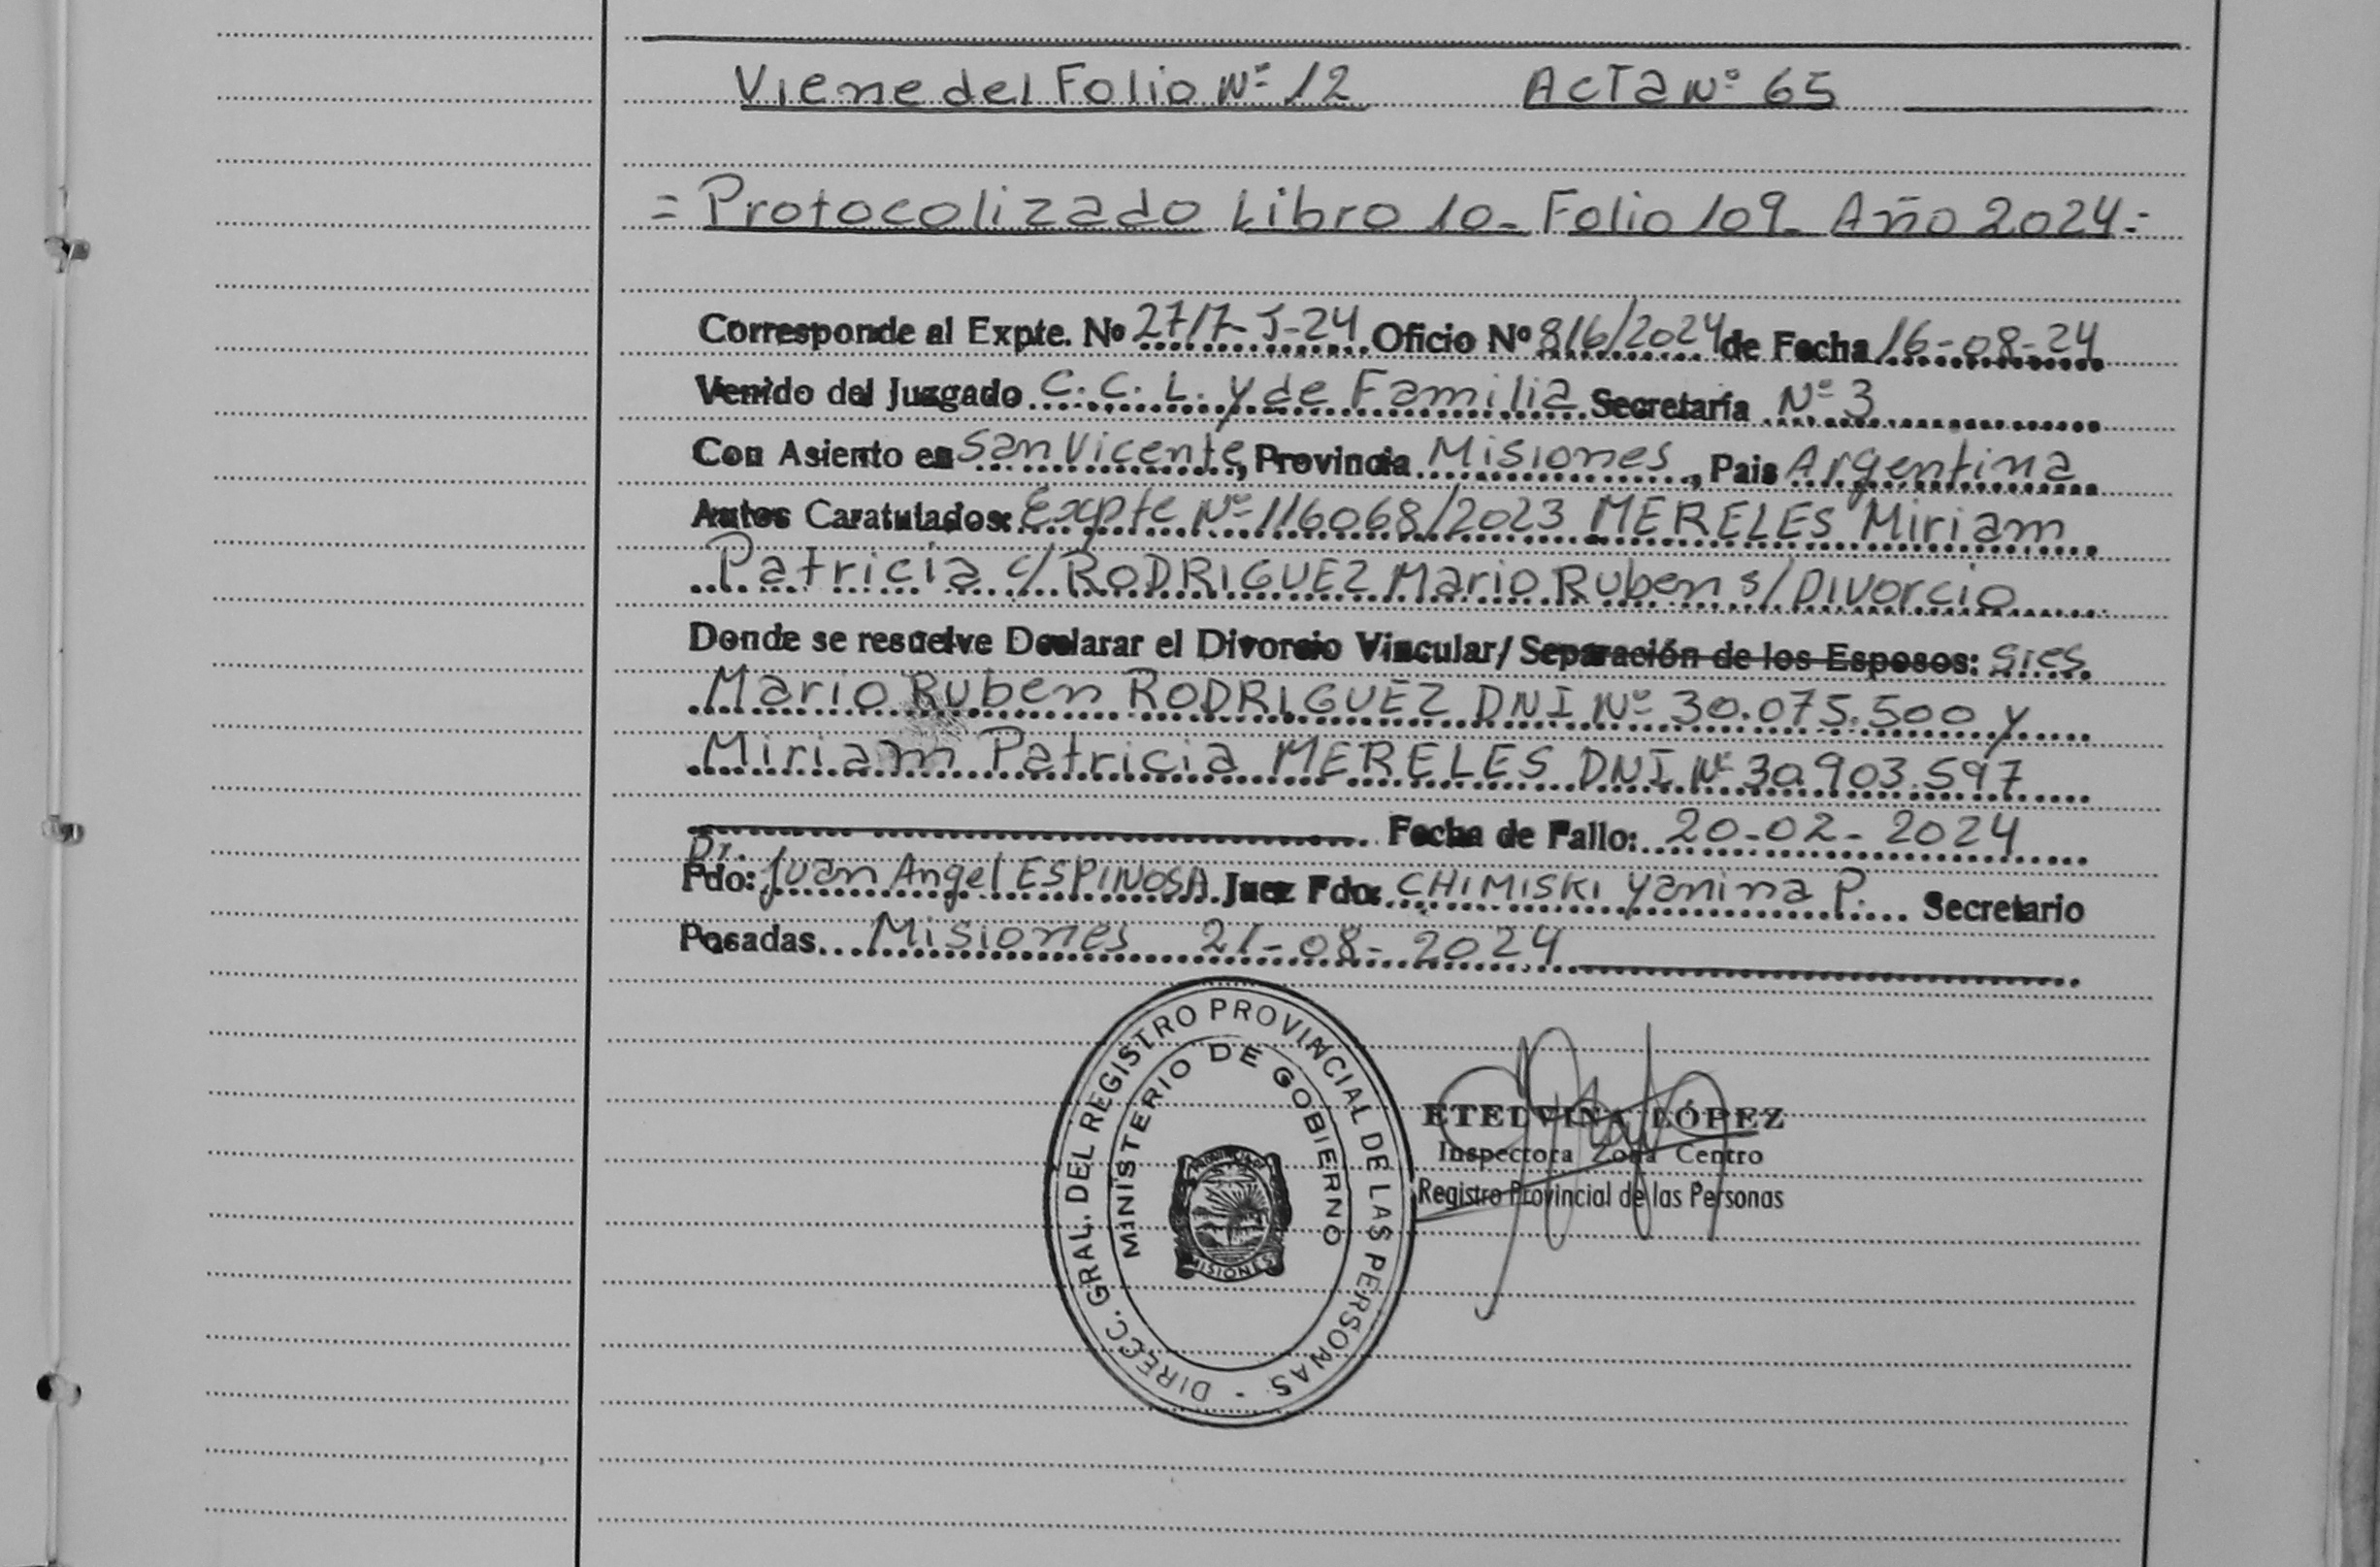 Viene del Folio Nº 12 Acta Nº 65
= Protocolizado Libro 10- Folio 109- Año 2024=
Corresponde al Expte. Nº 2717-J-24 Oficio Nº 816/2024 de Fecha 16-08-24
Venido del Juzgado C. C. L. y de Familia Secretaría Nº 3
Con Asiento en San Vicente, Provincia Misiones, Pais Argentina
Autos Caratulados: Expte Nº 116068/2023 MERELES Miriam
Patricia c/ RODRIGUEZ Mario Ruben s/ Divorcio
Donde se resuelve Declarar el Divorcio Vincular/ Separación de los Esposos: Sres
Mario Ruben RODRIGUEZ DNI Nº 30.075.500 y
Miriam Patricia MERELES DNI Nº 30.903.597
Fecha de Fallo: 20-02-2024
Dr.
Fdo: Juan Angel ESPINOSA. Juez Fdo: CHIMISKI Yanina P. Secretario
Posadas Misiones 21-08-2024
DIREC. GRAL. DEL REGISTRO PROVINCIAL DE LAS PERSONAS -
MINISTERIO DE GOBIERNO
MISIONES
ETELVINA LÓPEZ
Inspectora Zona Centro
Registro Provincial de las Personas